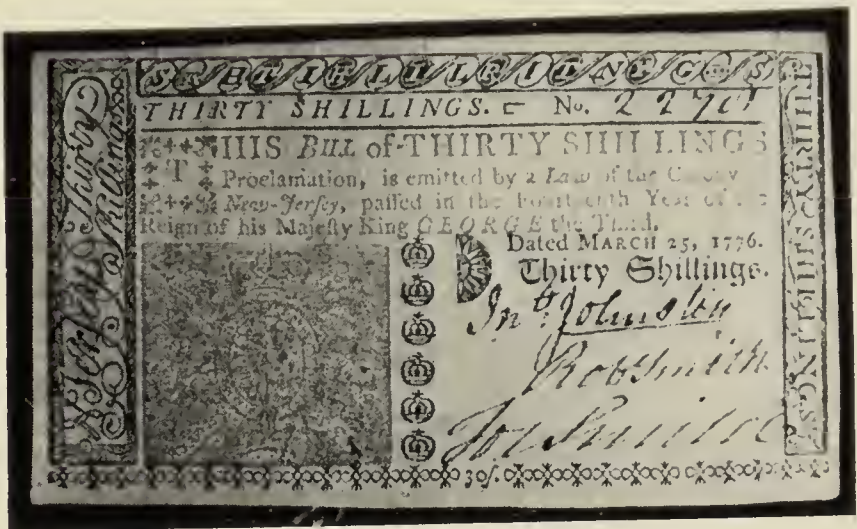 THIRTY SHILLINGS. No. 2270
THIS BILL of THIRTY SHILLINGS
Proclamation, is emitted by a Law of the Colony
New-Jerſey, paſſed in the Fourteenth Year of the
Reign of his Majeſty King GEORGE the Third.
Dated MARCH 25, 1776.
Thirty Shillings.
Jnº. Johnston
Rob Smith
Jos Smith
30ſ.
Thirty Shillings
N Jerſey
THIRTY SHILLINGS